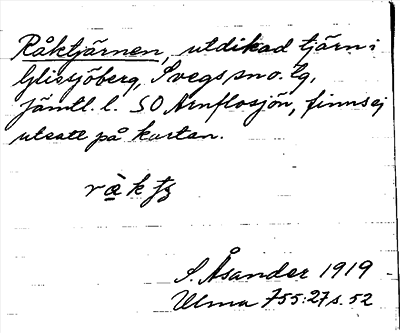 Råktjärnen, utdikad tjärn i
Glissjöberg, Svegs sn o. tg,
Jämtl. l. SO Arnflosjön, finns ej
utsatt på kartan.
S. Åsander 1919
Ulma 755:27 s. 52